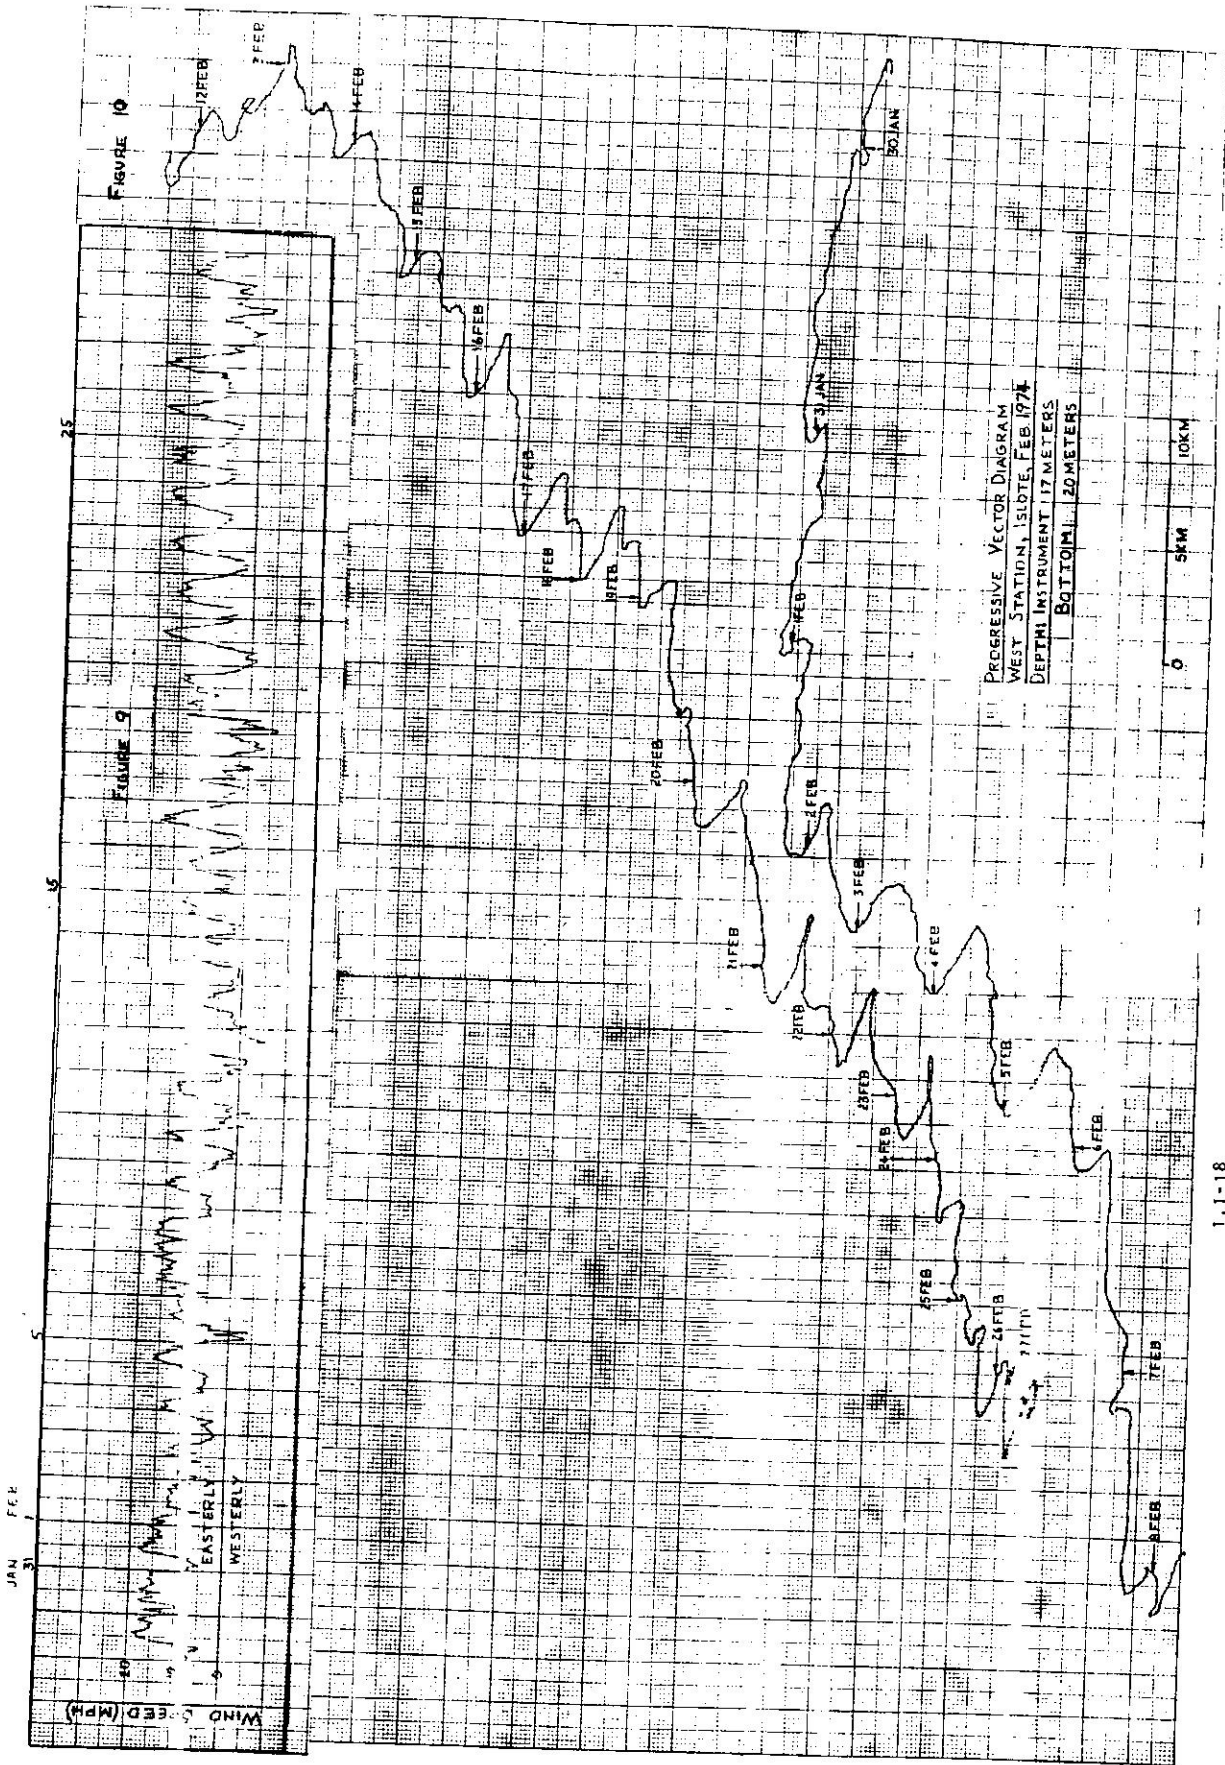 FIGURE 10
FIGURE 9
JAN FEB
31 1 5 15 25
WIND EED (MPH)
20
EASTERLY
WESTERLY
12FEB
14FEB
15FEB
16FEB
17FEB
18FEB
19FEB
20FEB
21FEB
22FEB
23FEB
24FEB
25FEB
26FEB
30JAN
31JAN
1FEB
2FEB
3FEB
4FEB
5FEB
6FEB
7FEB
8FEB
PROGRESSIVE VECTOR DIAGRAM
WEST STATION, ISLOTE, FEB 1974
DEPTH: INSTRUMENT 17 METERS
BOTTOM 20 METERS
0 5KM 10KM
1.1-18